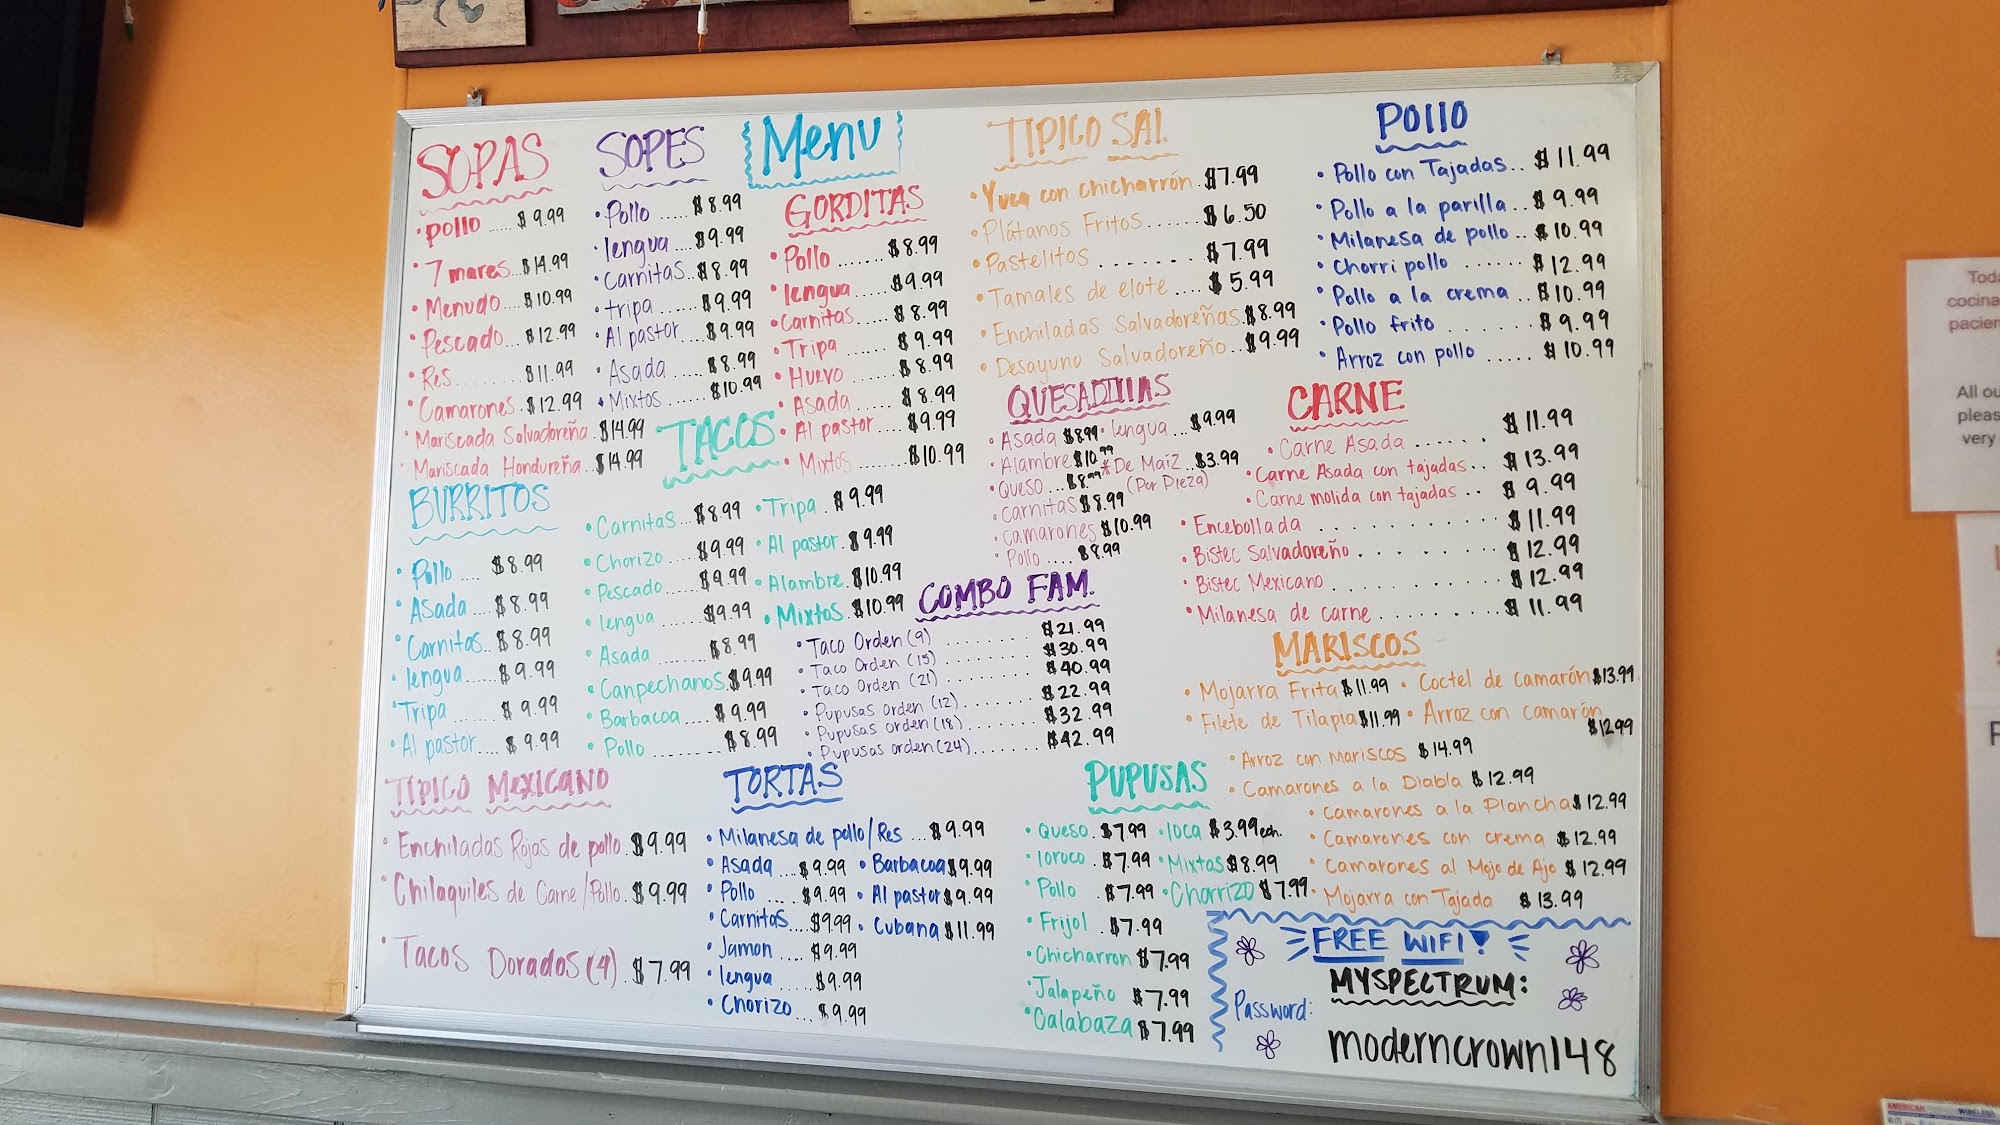 Menu
SOPAS
• pollo ...... $9.99
• 7 mares... $14.99
• Menudo .... $10.99
• Pescado... $12.99
• Res......... $11.99
• Camarones . $12.99
• Mariscada Salvadoreña . $14.99
• Mariscada Hondureña .. $14.99
SOPES
• Pollo ..... $8.99
• lengua .... $9.99
• Carnitas.. $8.99
• tripa ..... $9.99
• Al pastor .. $9.99
• Asada .... $8.99
• Mixtos ..... $10.99
GORDITAS
• Pollo ....... $8.99
• lengua ...... $9.99
• Carnitas..... $8.99
• Tripa ...... $9.99
• Huevo ...... $8.99
• Asada ..... $8.99
• Al pastor .... $9.99
• Mixtos ....... $10.99
TIPICO SAL.
• Yuca con chicharrón . $7.99
• Plátanos Fritos ...... $6.50
• Pastelitos . . . . . . $7.99
• Tamales de elote .... $5.99
• Enchiladas Salvadoreñas. $8.99
• Desayuno Salvadoreño .. $9.99
POllO
• Pollo con Tajadas.. $11.99
• Pollo a la parilla .. $9.99
• Milanesa de pollo .. $10.99
• Chorri pollo ...... $12.99
• Pollo a la crema .. $10.99
• Pollo frito . . . . . . $9.99
• Arroz con pollo ..... $10.99
BURRITOS
• Pollo .... $8.99
• Asada .... $8.99
• Carnitas.. $8.99
• lengua.... $9.99
• Tripa ...... $9.99
• Al pastor.... $9.99
TACOS
• Carnitas... $8.99
• Chorizo .... $9.99
• Pescado .... $9.99
• lengua ...... $9.99
• Asada ....... $8.99
• Canpechanos. $9.99
• Barbacoa .... $9.99
• Pollo ........ $8.99
• Tripa . $9.99
• Al pastor . $9.99
• Alambre . $10.99
• Mixtos .. $10.99
QUESADIllAS
• Asada $8.99 • lengua ... $9.99
• Alambre $10.99 * De Maiz .. $3.99
(Por Pieza)
• Queso ... $8.99
• Carnitas $8.99
• Camarones $10.99
• Pollo .... $8.99
CARNE
• Carne Asada ...... $11.99
• Carne Asada con tajadas.. $13.99
• Carne molida con tajadas .. $9.99
• Encebollada ............ $11.99
• Bistec Salvadoreño. ........ $12.99
• Bistec Mexicano .......... $12.99
• Milanesa de carne ........ $11.99
COMBO FAM.
• Taco Orden (9) ........ $21.99
• Taco Orden (15) ........ $30.99
• Taco Orden (21) ........ $40.99
• Pupusas orden (12) ...... $22.99
• Pupusas orden (18) ...... $32.99
• Pupusas orden (24) ...... $42.99
MARISCOS
• Mojarra Frita $11.99 • Coctel de camarón $13.99
• Filete de Tilapia $11.99 • Arroz con camarón $12.99
• Arroz con Mariscos $14.99
• Camarones a la Diabla $12.99
• Camarones a la Plancha $12.99
• Camarones con crema $12.99
• Camarones al Mojo de Ajo $12.99
• Mojarra con Tajada $13.99
TIPICO MEXICANO
• Enchiladas Rojas de pollo . $9.99
• Chilaquiles de Carne/Pollo. $9.99
• Tacos Dorados (4) . $7.99
TORTAS
• Milanesa de pollo/Res ... $9.99
• Asada .... $9.99 • Barbacoa $9.99
• Pollo .... $9.99 • Al pastor $9.99
• Carnitas.... $9.99 • Cubana $11.99
• Jamon .... $9.99
• lengua .... $9.99
• Chorizo ... $9.99
PUPUSAS
• Queso . $7.99 • loca $3.99 ech.
• loroco . $7.99 • Mixtas $8.99
• Pollo . $7.99 • Chorrizo $7.99
• Frijol . $7.99
• Chicharron $7.99
• Jalapeño $7.99
• Calabaza $7.99
FREE WIFI!
MYSPECTRUM:
Password:
moderncrown148
Toda
cocina
pacien
All ou
pleas
very
AMERICAN WIRELESS